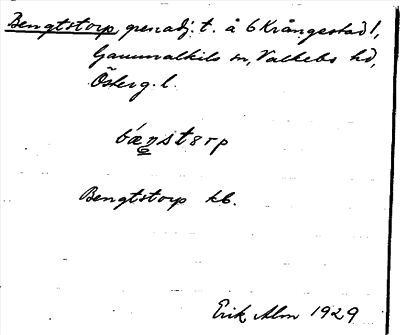 Bengtstorp, grenadj. t. å 6 Krångestad 1,
Gammalkils sn, Valkebo hd,
Österg. l.
Bengtstorp kb.
Erik Alm 1929